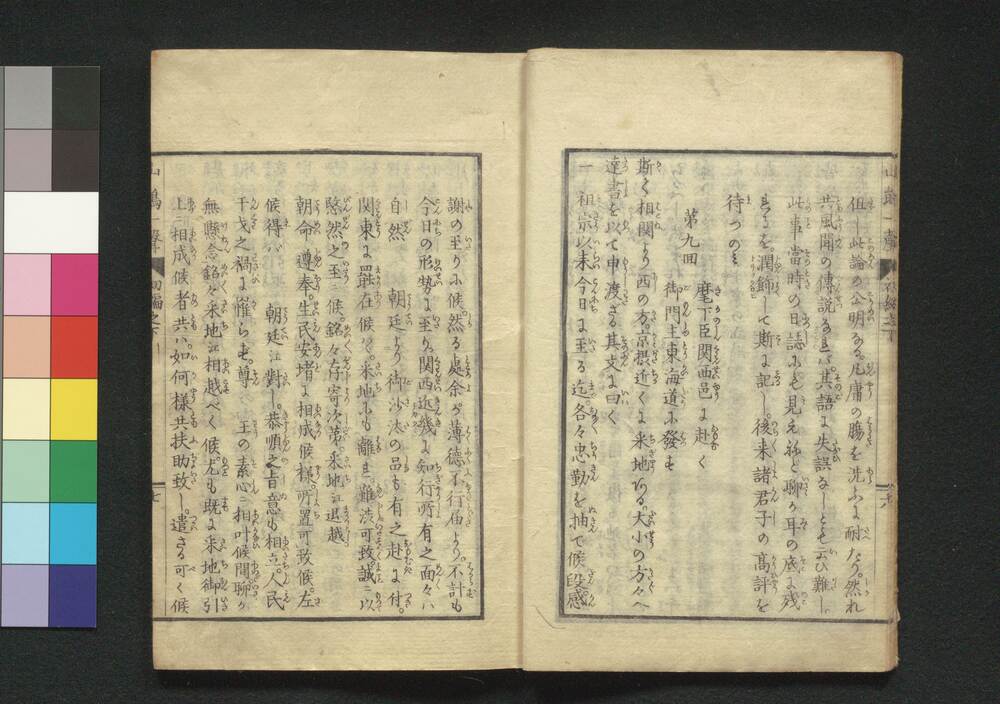 伹し此論の公明なる。凡庸の膓を洗ふに耐たり。然れ
共風聞の傳説なれバ。其語に失誤なしとも云ひ難し
此事當時の日誌にも見えねど聊か耳の底に残
れるを。潤飾して斯に記し。後来諸君子の髙評を
待つのミ
第九回
麾下臣関西邑に赴く
御門主東海道に發す
斯く相聞より西の方。京摂近くに采地ある大小の方々へ
達書を以て申渡さる其文に曰く
一 祖宗以来今日に至る迄。各々忠勤を抽て候段。感
謝の至りに候。然る處余が薄德不行届より。不計も
今日の形勢に至り。関西近畿に知行所有之面々ハ
自然 朝廷より御沙汰の品も有之赴に付。
関東に罷在候てハ。采地にも離れ。難渋可致。誠ニ以
愍然之至ニ候。銘々存寄次第。采地江退越
朝命 遵奉。生民安堵に相成候様。所置可致候。左
候得バ 朝廷江對し。恭順之旨意も相立。人民
干戈之禍に罹らず。尊 王の素心ニ相叶候間聊か
無懸念銘々采地江相越べく候。尤も既に采地御引
上ニ相成候者共ハ。如何様共扶助致し。遣さる可く候
山鵑一聲
初編之下
七